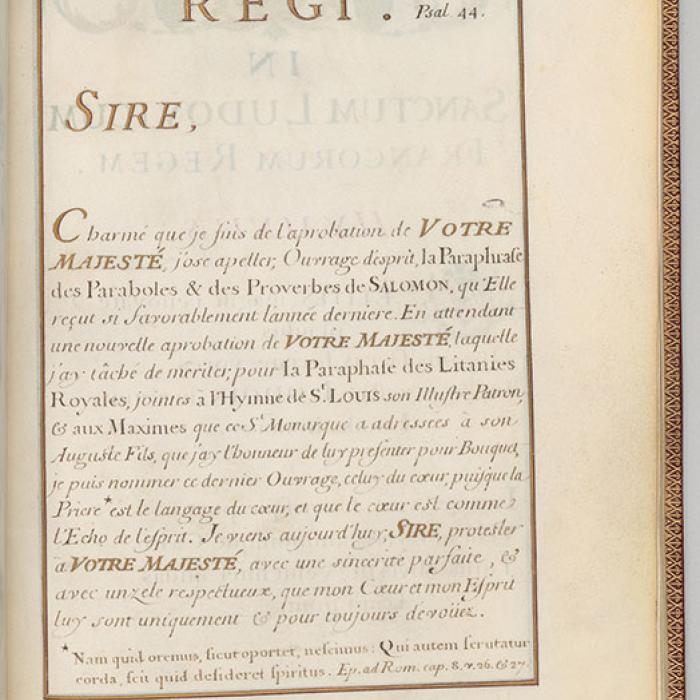 REGI. Psal. 44.
SIRE,
Charmé que je suis de l'aprobation de VOTRE
MAJESTÉ, j'ose apeller, Ouvrage d'esprit, la Paraphrase
des Paraboles & des Proverbes de SALOMON, qu'Elle
reçut si favorablement l'année derniere. En attendant
une nouvelle aprobation de VOTRE MAJESTÉ, laquelle
j'ay tâché de meriter; pour la Paraphase des Litanies
Royales, jointes à l'Hymne de St. LOUIS son Illustre Patron,
& aux Maximes que ce St Monarque a adressées à son
Auguste Fils, que j'ay l'honneur de luy presenter pour Bouquet,
je puis nommer ce dernier Ouvrage, celuy du cœur, puisque la
Priere * est le langage du cœur, et que le cœur est comme
l'Echo de l'esprit. Je viens aujourd'huy, SIRE, protester
à VOTRE MAJESTÉ, avec une sincerité parfaite, &
avec un zele respectueux, que mon Cœur et mon Esprit
luy sont uniquement & pour toujours devoüez.
* Nam quid oremus, sicut oportet, nescimus: Qui autem scrutatur
corda, scit quid desideret spiritus. Ep. ad Rom. cap. 8. v. 26. & 27.
IN
SANCTUM LUDOVICUM
FRANCORUM REGEM.